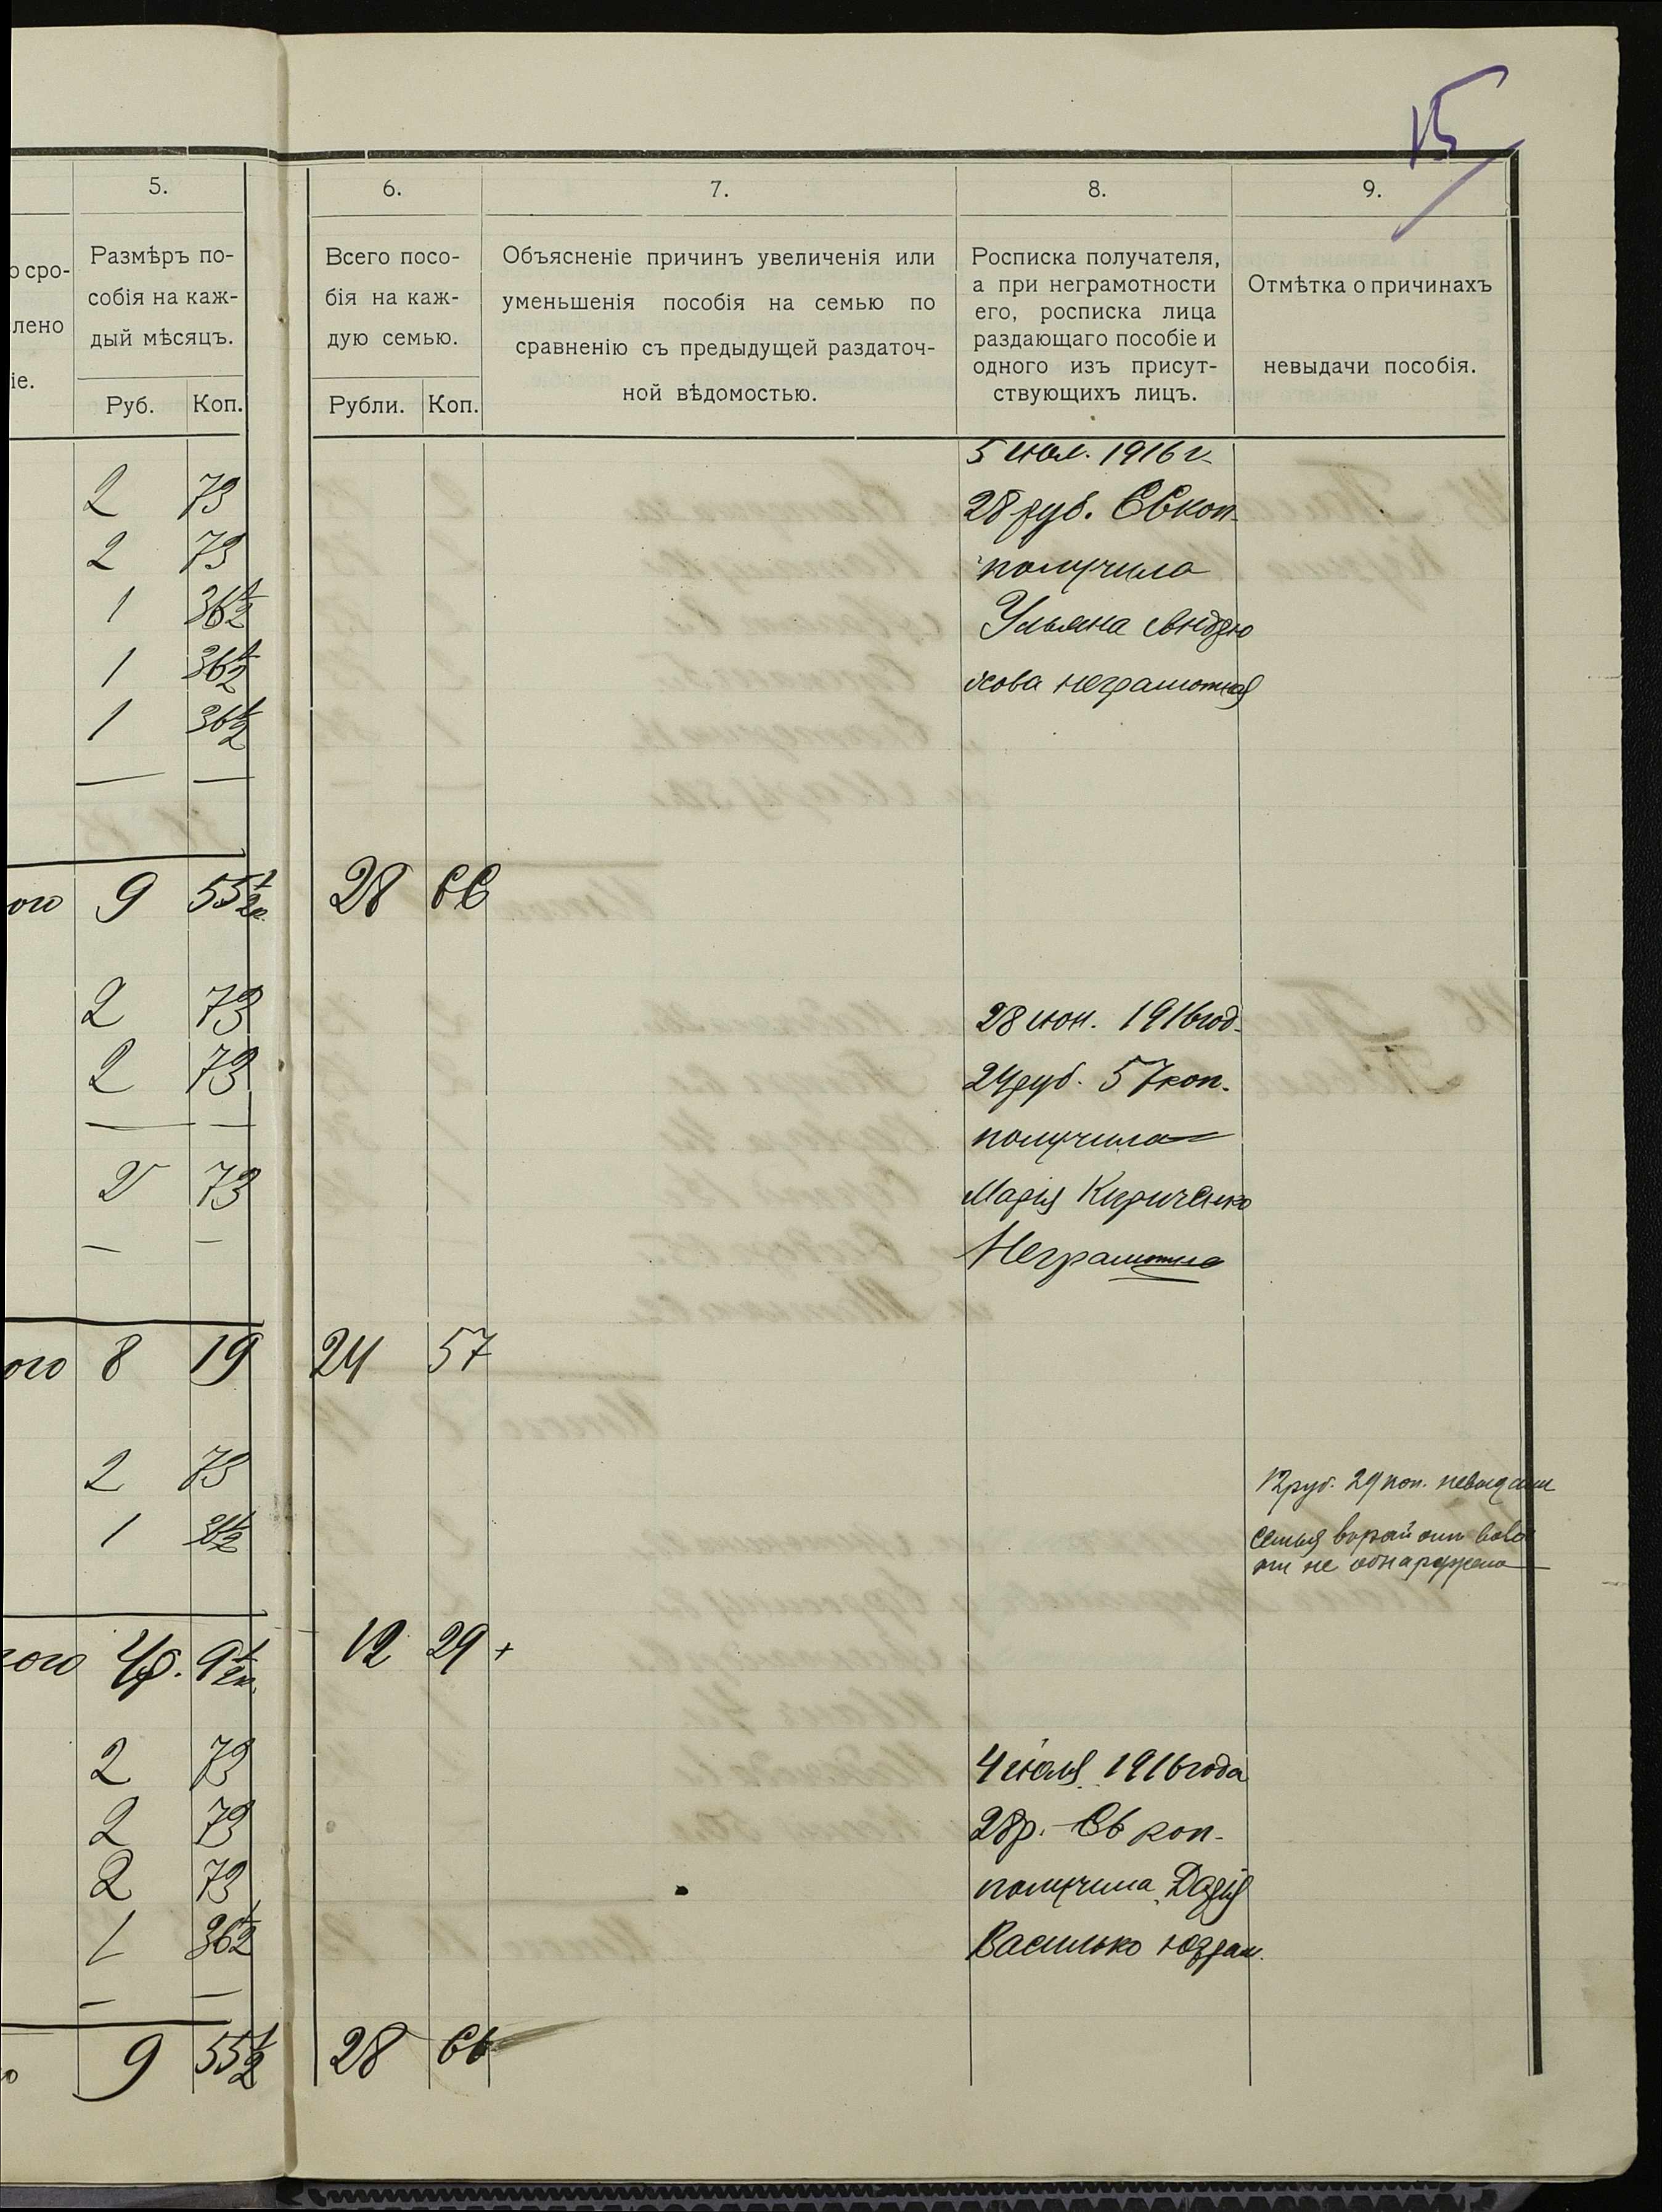 15
5. 6. 7. 8. 9.
о сро-
лено
іе.
Размѣръ по-
собія на каж-
дый мѣсяцъ.
Руб. Коп.
Всего посо-
бія на каж-
дую семью.
Рубли. Коп.
Объясненіе причинъ увеличенія или
уменьшенія пособія на семью по
сравненію съ предыдущей раздаточ-
ной вѣдомостью.
Росписка получателя,
а при неграмотности
его, росписка лица
раздающаго пособіе и
одного изъ присут-
ствующихъ лицъ.
Отмѣтка о причинахъ
невыдачи пособія.
5 июл. 1916 г.
2 73 28 руб. 66 коп.
2 73 получила
1 36 1/2 Ульяна Андрю
1 36 1/2 хова неграмотная
1 36 1/2
— —
ого 9 55 1/2 к. 28 66
2 73 28 июн. 1916 год.
2 73 24 руб. 57 коп.
— — получила
2 73 Марія Кириченко
— — Неграмотна
ого 8 19 24 57
2 73 12 руб. 29 коп. невыдани
1 36 1/2 Семья
не обнаружена
того 4 р. 9 1/2 к. 12 29 +
2 73 4 июля 1916 года
2 73 28 р. 66 коп.
2 73 получила Дарія
1 36 1/2 Василько
— —
о 9 55 1/2 28 66